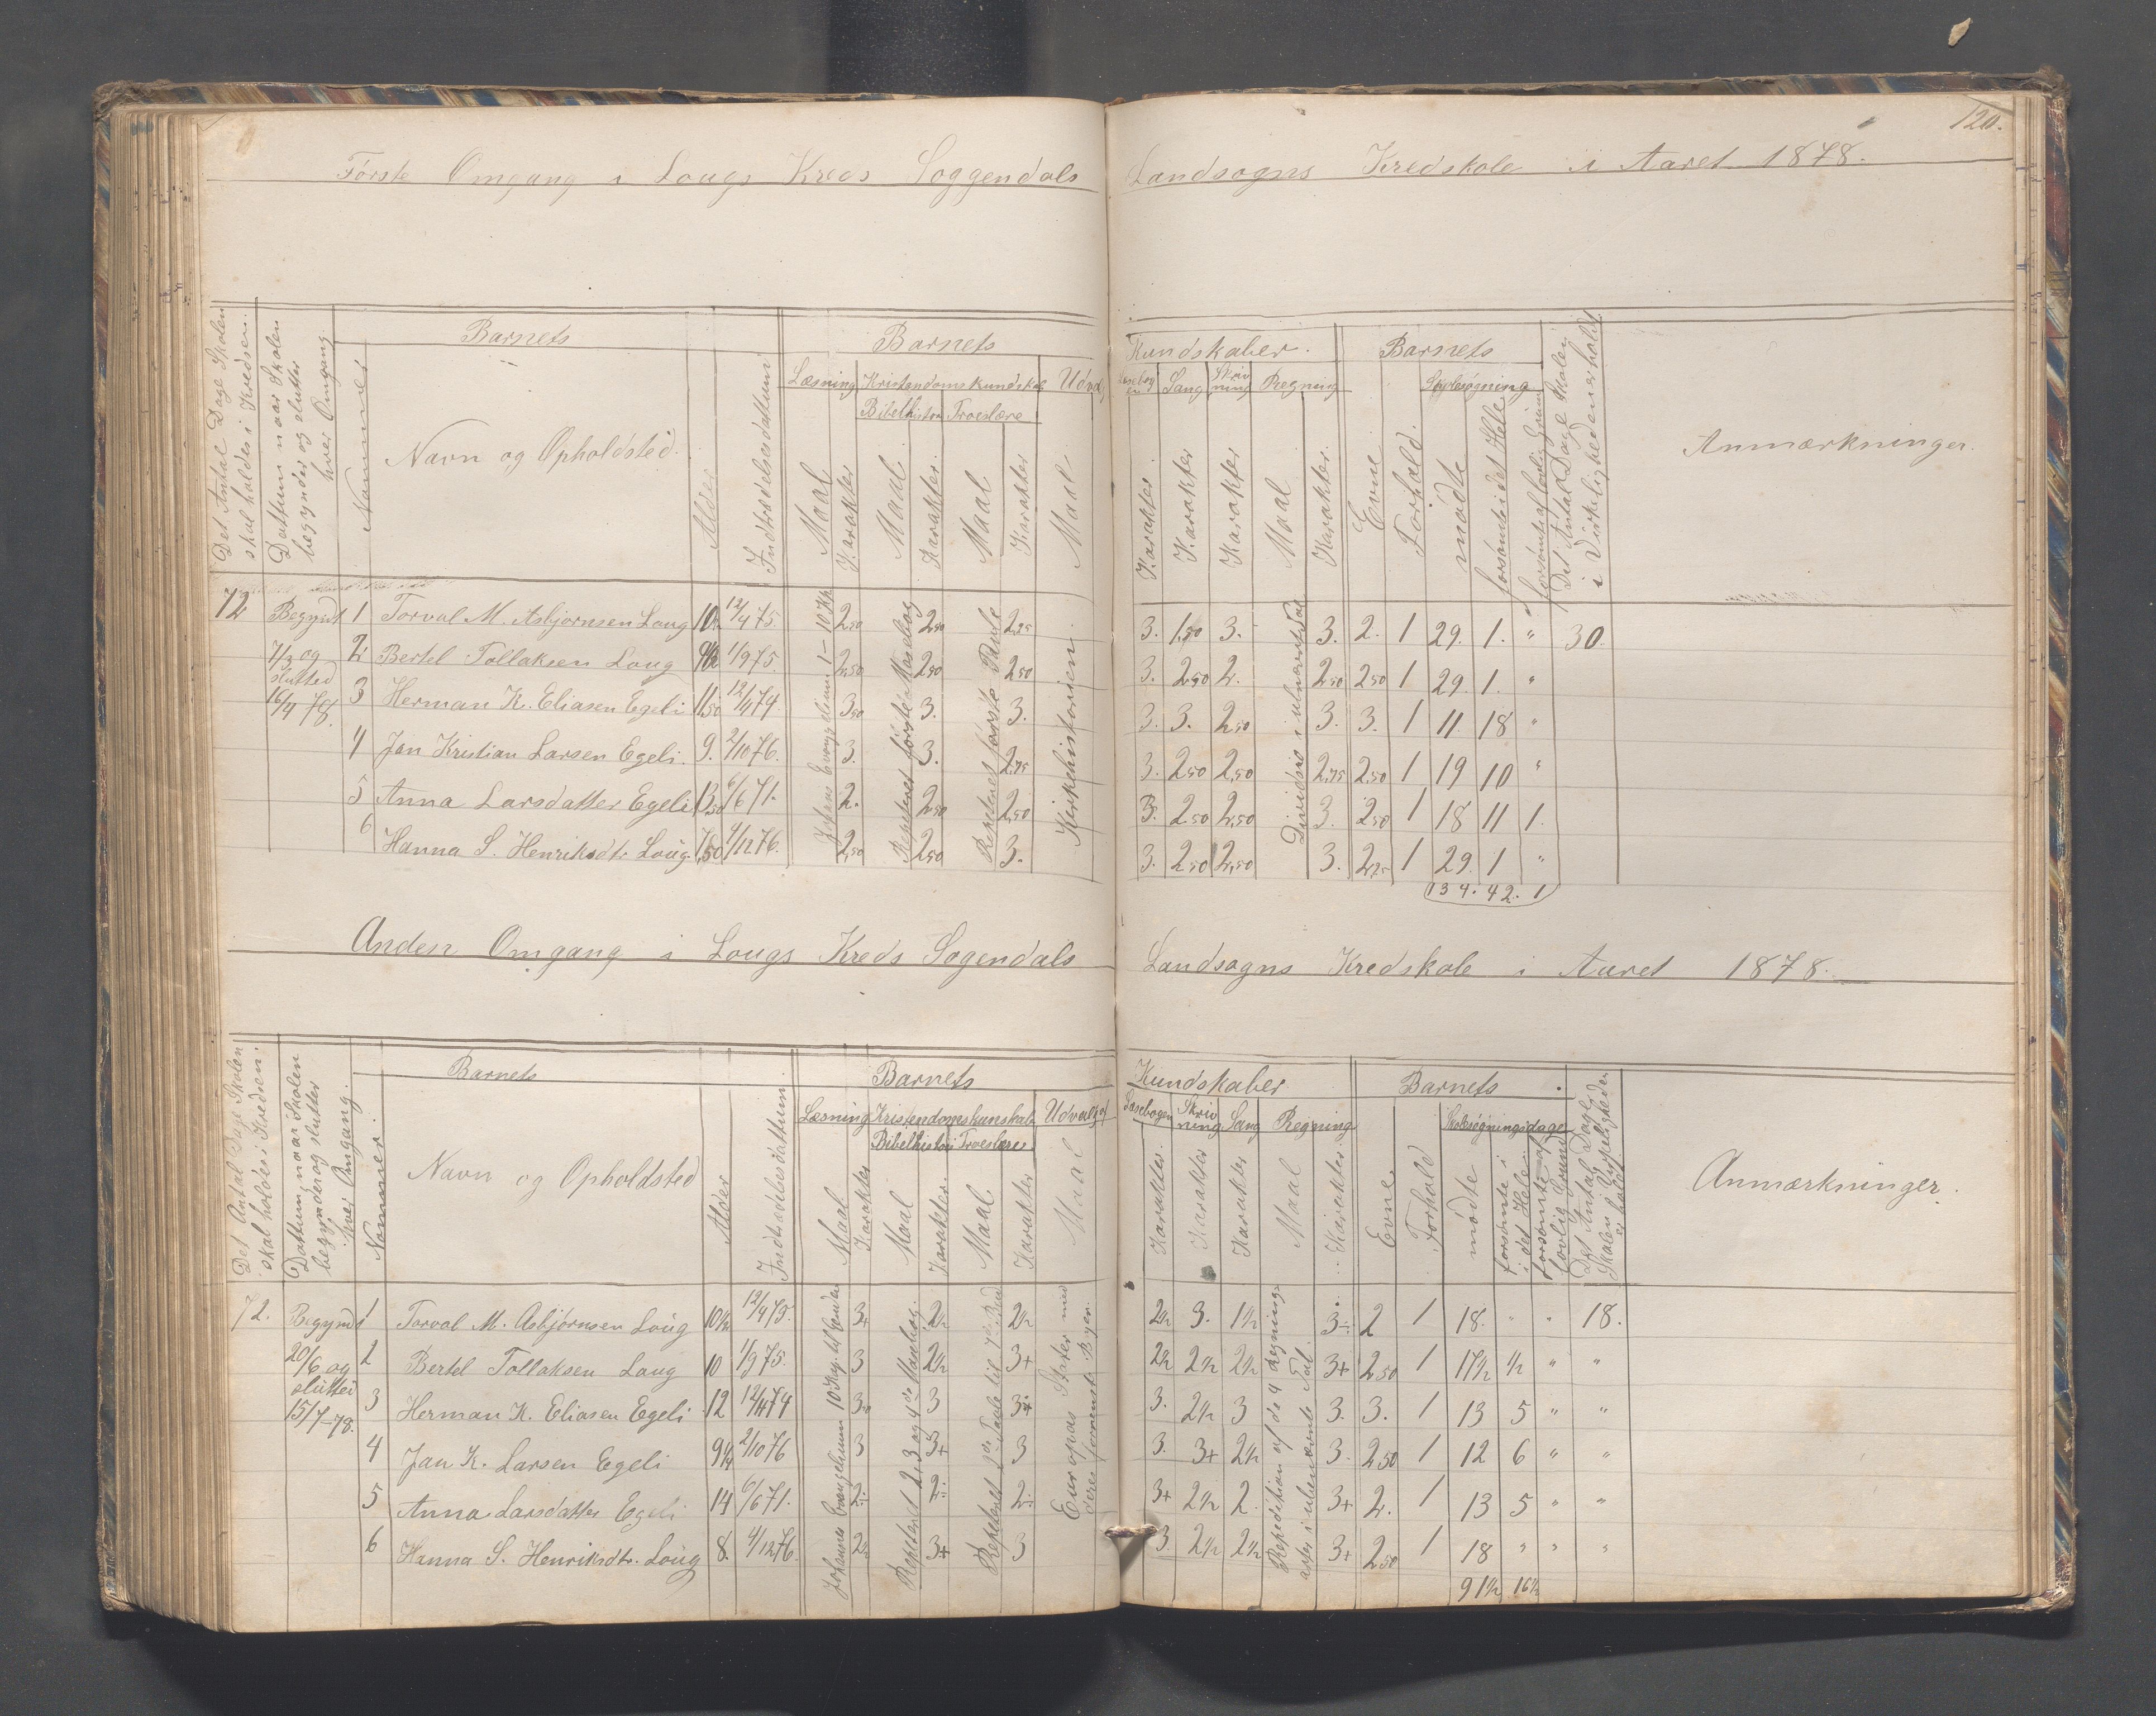 120.
Første Omgang i Lougs Kreds Soggendals Landsogns Kredskole i Aaret 1878.
Det Antal Dage Skolen skal holdes i Kredsen.
Dattum naar Skolen begynder og slutter hver Omgang
Barnets
Nommer
Navn og Opholdsted.
Alder
Indtrædelsesdattum
Barnets Kundskaber.
Læsning Kristendomskundskab Udvalg
Bibelhistori Troeslære
Maal Karakter Maal Karakter. Maal Karakter Maal
Sang Skrivning Regning
Karakter Karakter Karakter Maal Karakter.
Barnets
Evne Forhold. mødte
Skolesøgning
forsømte i det Hele
forsømte af lovlig Grund
Det Antal Dage Skolen i Virkeligheden er holdt
Anmærkninger.
72 Begyndt 7/3 og slutted 16/4 78.
1 Torval M. Asbjørnsen Loug 10½ 12/4 75. 2,50 2,50 2,75 3. 1,50 3. 3. 2. 1 29. 1. " 30.
2 Bertel Tollaksen Loug 9½ 1/9 75. 2,50 2,50 2,50 3. 2,50 2. 2,50 2,50 1 29. 1. "
3 Herman K. Eliasen Egeli 11,50 12/4 74 3,50 3. 3. 3. 3. 2,50 3. 3. 1 11. 18 "
4 Jan Kristian Larsen Egeli. 9. 2/10 76. 3. 3. 2,75 3. 2,50 2,50 2,75 2,50 1 19 10 "
5 Anna Larsdatter Egeli 13,50 6/6 71. 2. 2,50 2,50 3. 2,50 2,50 3. 2,50 1 18 11 1.
6 Hanna S. Henriksdtr. Loug. 7,50 4/12 76. 2,50 2,50 3. 3. 2,50 2,50 3. 2,75 1 29. 1 "
Johans Evangelium 1-10 Kp.
Repeteret første Mosebog
Repeteret første Tavle
Kirkehistorien.
Divisjon i ubenævnte Tal
134. 42. 1
Anden Omgang i Lougs Kreds Sogendals Landsogns Kredskole i Aaret 1878.
Det Antal Dage Skolen skal holdes i Kredsen.
Dattum, naar Skolen begynder og slutter hver Omgang.
Barnets
Nommer.
Navn og Opholdsted
Alder
Indtrædelsesdattum.
Barnets Kundskaber
Læsning Kristendomskundskab Udvalg af Læsebogen Skrivning Sang Regning
Bibelhistori Troeslære.
Maal Karakter Maal Karakter. Maal. Karakter Maal Karakter. Karakter Karakter Maal Karakter
Barnets
Evne Forhold mødte
Skolesøgningsdage
forsømte i det Hele
forsømte af lovlig Grund
Det Antal Dage Skolen i Virkeligheden er holdt
Anmærkninger.
72. Begyndt 20/6 og sluttet 15/7-78.
1 Torval M. Asbjørnsen Loug 10½ 12/4 75. 3+ 2½ 2½ 2½ 3. 1½ 3÷ 2 1 18. " " 18.
2 Bertel Tollaksen Loug 10 1/9 75. 3 2½ 3+ 2½ 2½ 2½ 3+ 2,50 1 17½ ½ " "
3 Herman K. Eliasen Egeli 12 12/4 74 3 3. 2½ 3 3. 3. 1 13 5 " "
4 Jan K. Larsen Egeli 9¼ 2/10 76 3 3+ 3 3. 3+ 2½ 3. 2,50 1 12 6 " "
5 Anna Larsdatter Egeli 14 6/6 71. 2÷ 2÷ 2÷ 3+ 2½ 2. 3+ 2. 1 13 5 " "
6 Hanna S. Henriksdtr. Loug 8. 4/12 76. 2½ 3+ 3 3. 2½ 2½ 3+ 2,50 1 18 " " "
Johannes Evangelium 10 Kap. til Enden
Repeteret 2, 3 og 4de Mosebog.
Europas Stater med deres fornemste Byer.
Repedition af de 4 Regningsarter i ubenævnte Tal.
91½ 16½